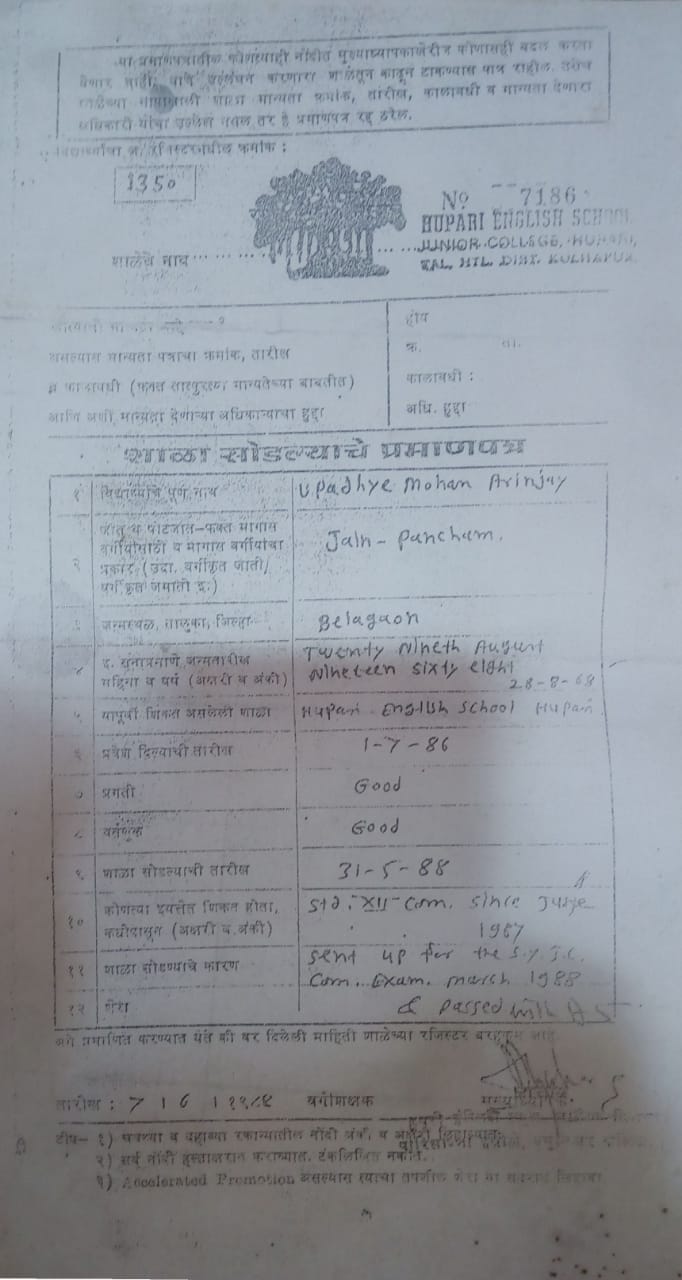 या प्रमाणपत्रातील कोणत्याही नोंदीत मुख्याध्यापकाखेरीज कोणासही बदल करता
येणार नाही, याचे उल्लंघन करणारा शाळेतून काढून टाकण्यास पात्र राहील. तसेच
शाळेच्या नावाखाली शाळा मान्यता क्रमांक, तारीख, कालावधी व मान्यता देणारा
अधिकारी यांचा उल्लेख नसेल तर हे प्रमाणपत्र रद्द ठरेल.
विद्यार्थ्यांचा ज. रजिस्टरमधील क्रमांक :
1350
No 7186
HUPARI ENGLISH SCHOOL
JUNIOR COLLEGE, HUPARI,
TAL. HTL. DIST. KOLHAPUR
शाळेचे नाव
होय
असल्यास मान्यता पत्राचा क्रमांक, तारीख
क्र. ता.
व कालावधी (फक्त तात्पुरत्या मान्यतेच्या बाबतीत)
कालावधी :
आणि अशी मान्यता देणाऱ्या अधिकाऱ्याचा हुद्दा
अधि. हुद्दा
शाळा सोडल्याचे प्रमाणपत्र
१ विद्यार्थ्याचे पूर्ण नाव Upadhye Mohan Arinjay
२ जात व पोटजात-फक्त मागास
वर्गीयांसाठी व मागास वर्गीयांचा
प्रकार (उदा. वर्गीकृत जाती/
वर्गीकृत जमाती इ:)
Jain - Pancham.
३ जन्मस्थळ, तालुका, जिल्हा Belagaon
४ इ. सनाप्रमाणे जन्मतारीख
महिना व वर्ष (अक्षरी व अंकी)
Twenty Nineth August
Nineteen sixty eight
28-8-68
५ यापूर्वी शिकत असलेली शाळा Hupari English School Hupari
६ प्रवेश दिल्याची तारीख 1-7-86
७ प्रगती Good
८ वर्तणूक Good
९ शाळा सोडल्याची तारीख 31-5-88
१० कोणत्या इयत्तेत शिकत होता,
कधीपासून (अक्षरी व अंकी)
Std. XII Com. since June
1987
११ शाळा सोडण्याचे कारण Sent up for the S.Y.J.C.
Com. Exam. March 1988
१२ शेरा & Passed with
असे प्रमाणित करण्यात येते की वर दिलेली माहिती शाळेच्या रजिस्टर बरहुकूम आहे.
तारीख : 7 / 6 / १९८८ वर्गशिक्षक मुख्याध्यापक
टीप- १) चवथ्या व दहाव्या रकान्यातील नोंदी अंकी, व अक्षरी
२) सर्व नोंदी हस्ताक्षरात कराव्यात. टंकलिखित नकोत.
३) Accelerated Promotion असल्यास त्याचा तपशील शेरा या सदरात लिहावा